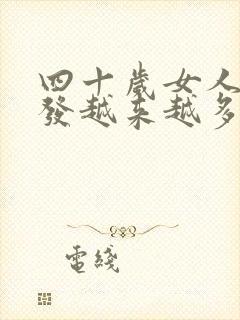 四十歲女人
發越来越多
電綫